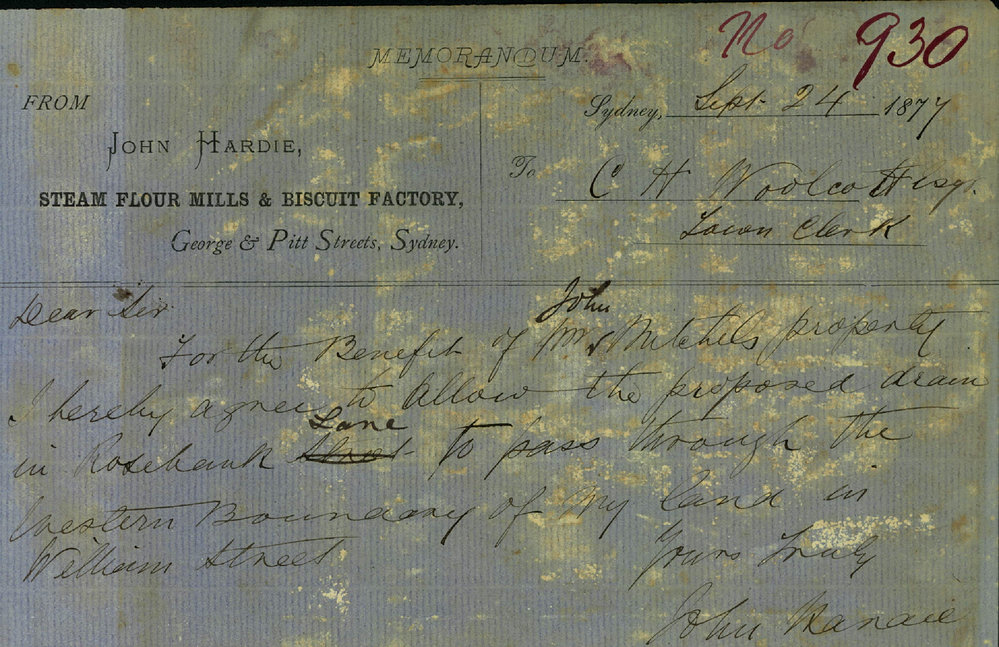 No 930
MEMORANDUM.
FROM
JOHN HARDIE,
STEAM FLOUR MILLS & BISCUIT FACTORY,
George & Pitt Streets, Sydney.
Sydney, Sept 24 1877
To C H Woolcott Esqr.
Town Clerk
Dear Sir
For the Benefit of Mr John Mitchels property
I hereby agree to allow the proposed drain
in Rosebank Street Lane to pass through the
Western Boundary of my land in
William Street
Yours Truly
John Hardie